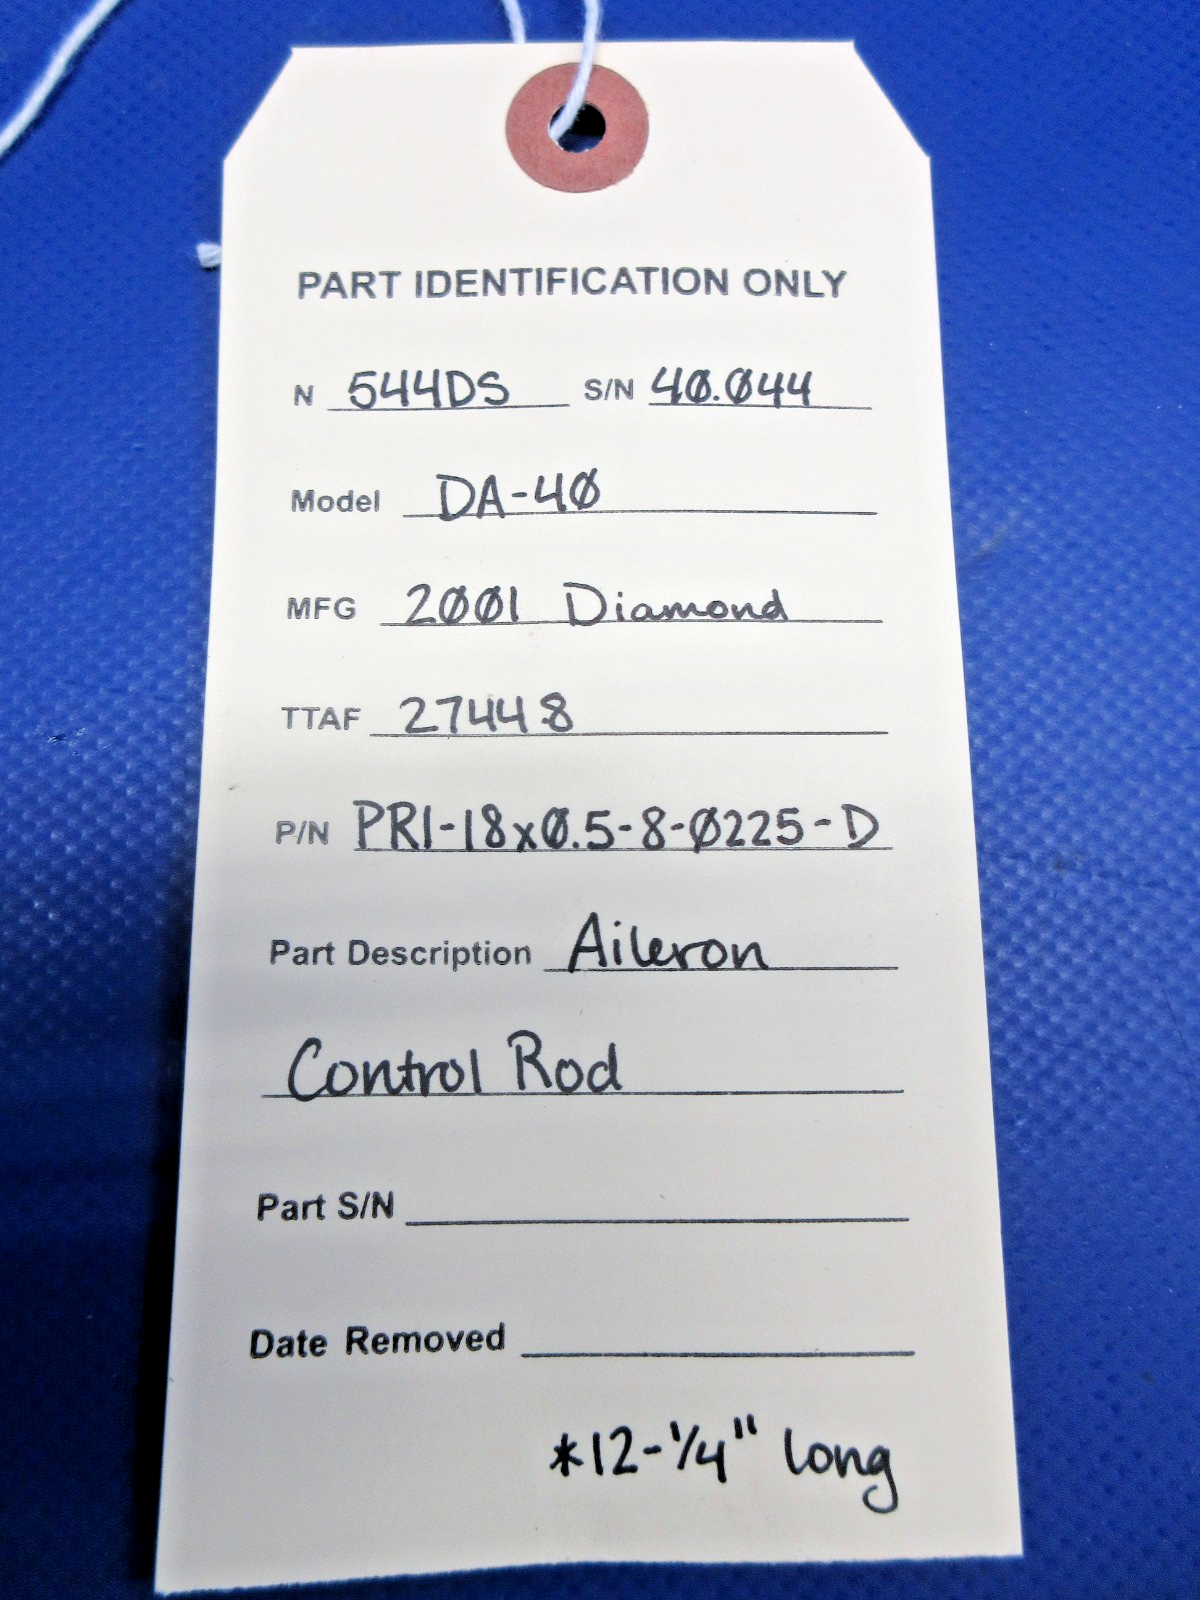 PART IDENTIFICATION ONLY
N 544DS S/N 40.044
Model DA-40
MFG 2001 Diamond
TTAF 2744.8
P/N PR1-18x0.5-8-0225-D
Part Description Aileron
Control Rod
Part S/N
Date Removed
*12-1/4" long